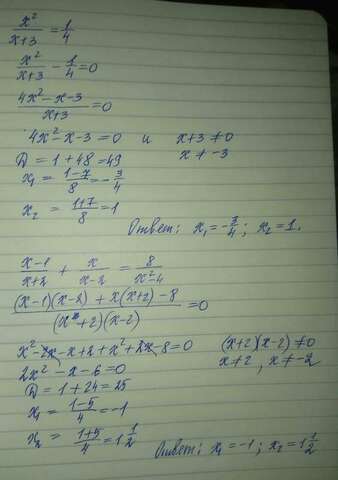 x²/(x+3) = 1/4
x²/(x+3) - 1/4 = 0
(4x² - x - 3)/(x+3) = 0
4x² - x - 3 = 0 и x+3 ≠ 0
D = 1 + 48 = 49 x ≠ -3
x₁ = (1-7)/8 = -3/4
x₂ = (1+7)/8 = 1
Ответ: x₁ = -3/4; x₂ = 1.
(x-1)/(x+2) + x/(x-2) = 8/(x²-4)
((x-1)(x-2) + x(x+2) - 8)/((x+2)(x-2)) = 0
x² - 2x - x + 2 + x² + 2x - 8 = 0 (x+2)(x-2) ≠ 0
2x² - x - 6 = 0 x ≠ 2, x ≠ -2
D = 1 + 24 = 25
x₁ = (1-5)/4 = -1
x₂ = (1+5)/4 = 1 1/2
Ответ: x₁ = -1; x₂ = 1 1/2